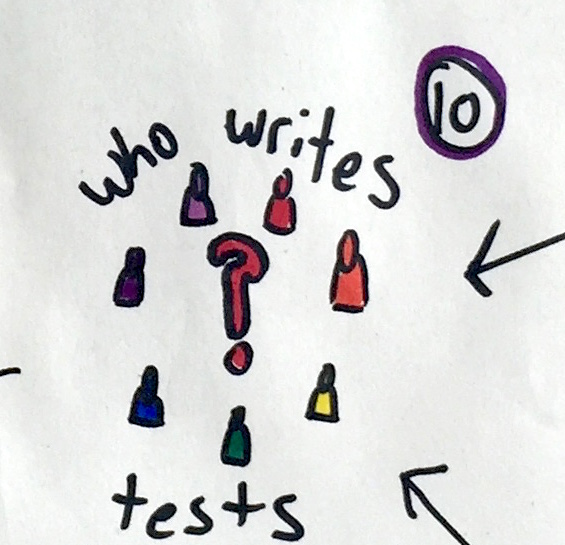 10
who writes
?
tests